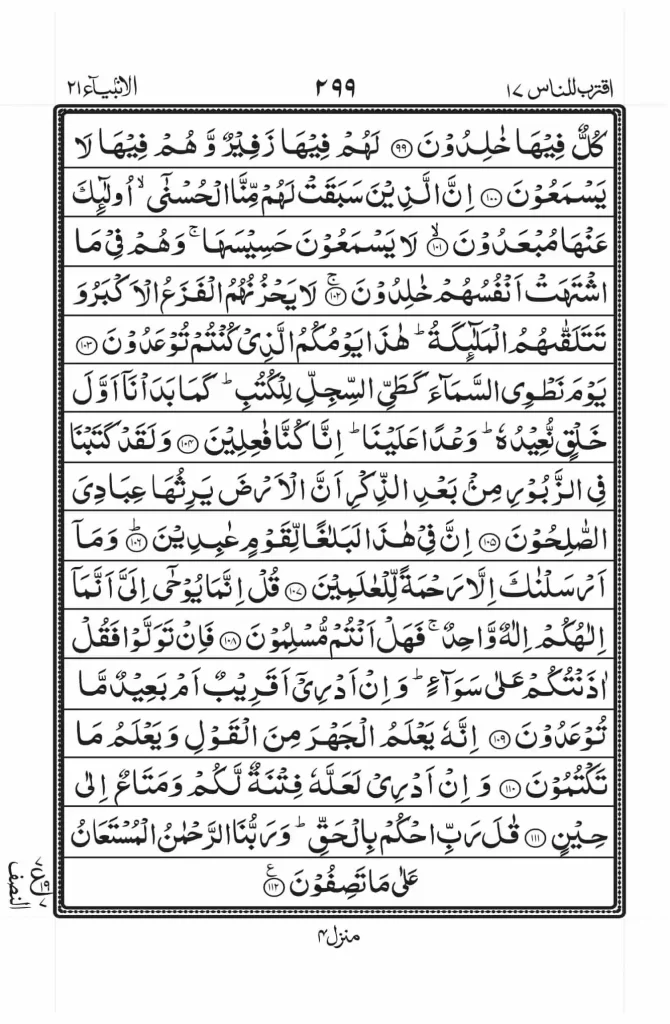 اقترب للناس ۱۷ ۲۹۹ الانبیآء ۲۱
كُلٌّ فِیْهَا خٰلِدُوْنَ ۝۹۹ لَهُمْ فِیْهَا زَفِیْرٌ وَّ هُمْ فِیْهَا لَا
یَسْمَعُوْنَ ۝۱۰۰ اِنَّ الَّذِیْنَ سَبَقَتْ لَهُمْ مِّنَّا الْحُسْنٰۤیۙ اُولٰٓىِٕكَ
عَنْهَا مُبْعَدُوْنَۙ ۝۱۰۱ لَا یَسْمَعُوْنَ حَسِیْسَهَاۚ وَ هُمْ فِیْ مَا
اشْتَهَتْ اَنْفُسُهُمْ خٰلِدُوْنَۚ ۝۱۰۲ لَا یَحْزُنُهُمُ الْفَزَعُ الْاَكْبَرُ وَ
تَتَلَقّٰىهُمُ الْمَلٰٓىِٕكَةُؕ هٰذَا یَوْمُكُمُ الَّذِیْ كُنْتُمْ تُوْعَدُوْنَ ۝۱۰۳
یَوْمَ نَطْوِی السَّمَآءَ كَطَیِّ السِّجِلِّ لِلْكُتُبِؕ كَمَا بَدَاْنَاۤ اَوَّلَ
خَلْقٍ نُّعِیْدُهٗؕ وَعْدًا عَلَیْنَاؕ اِنَّا كُنَّا فٰعِلِیْنَ ۝۱۰۴ وَ لَقَدْ كَتَبْنَا
فِی الزَّبُوْرِ مِنْۢ بَعْدِ الذِّكْرِ اَنَّ الْاَرْضَ یَرِثُهَا عِبَادِیَ
الصّٰلِحُوْنَ ۝۱۰۵ اِنَّ فِیْ هٰذَا لَبَلٰغًا لِّقَوْمٍ عٰبِدِیْنَؕ ۝۱۰۶ وَ مَاۤ
اَرْسَلْنٰكَ اِلَّا رَحْمَةً لِّلْعٰلَمِیْنَ ۝۱۰۷ قُلْ اِنَّمَا یُوْحٰۤی اِلَیَّ اَنَّمَاۤ
اِلٰهُكُمْ اِلٰهٌ وَّاحِدٌۚ فَهَلْ اَنْتُمْ مُّسْلِمُوْنَ ۝۱۰۸ فَاِنْ تَوَلَّوْا فَقُلْ
اٰذَنْتُكُمْ عَلٰی سَوَآءٍؕ وَ اِنْ اَدْرِیْۤ اَقَرِیْبٌ اَمْ بَعِیْدٌ مَّا
تُوْعَدُوْنَ ۝۱۰۹ اِنَّهٗ یَعْلَمُ الْجَهْرَ مِنَ الْقَوْلِ وَ یَعْلَمُ مَا
تَكْتُمُوْنَ ۝۱۱۰ وَ اِنْ اَدْرِیْ لَعَلَّهٗ فِتْنَةٌ لَّكُمْ وَ مَتَاعٌ اِلٰی
حِیْنٍ ۝۱۱۱ قٰلَ رَبِّ احْكُمْ بِالْحَقِّؕ وَ رَبُّنَا الرَّحْمٰنُ الْمُسْتَعَانُ
عَلٰی مَا تَصِفُوْنَ ۝۱۱۲ع
النصف
منزل ۴